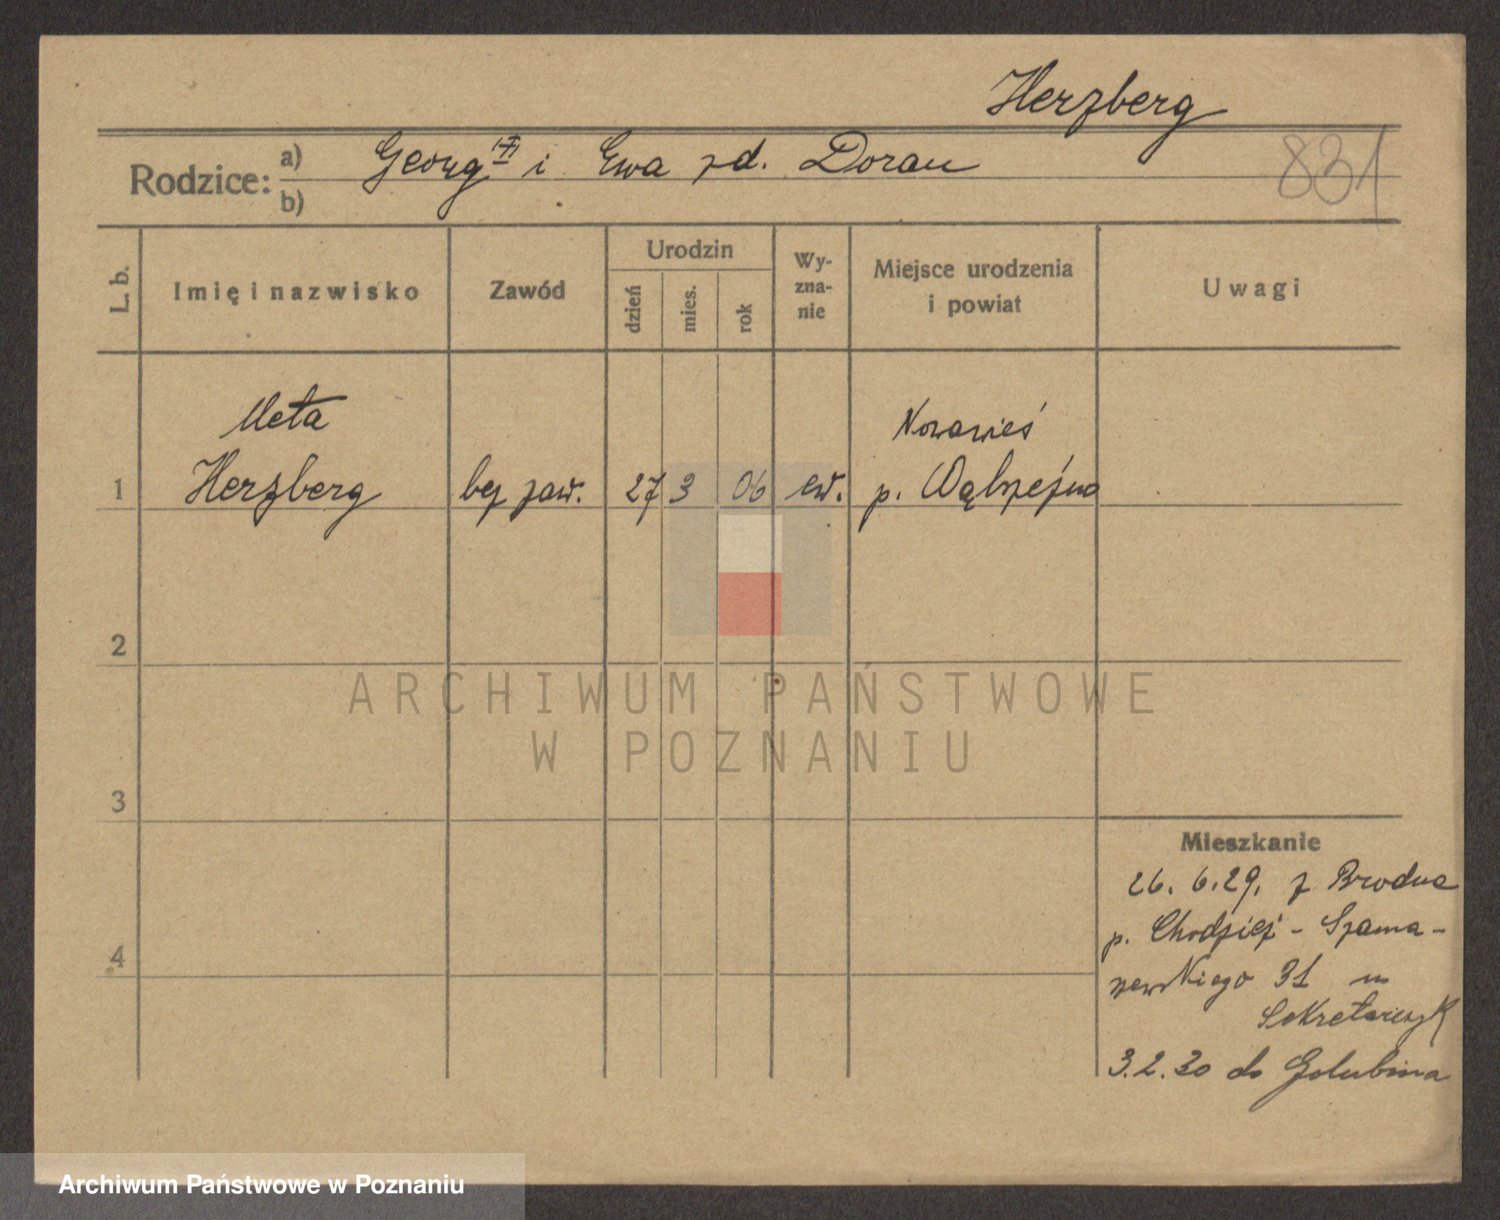 Herzberg
Rodzice: a) Georg i Ewa zd. Dorau
b)
831
L. b. Imię i nazwisko Zawód Urodzin dzień mies. rok Wy-zna-nie Miejsce urodzenia i powiat Uwagi
Meta Nowawieś
1 Herzberg bez zaw. 27 3 06 ew. p. Wąbrzeźno
2
ARCHIWUM PAŃSTWOWE
W POZNANIU
3
Mieszkanie
26. 6. 29. z Brodna
p. Chodzież - Szama-
4
rzewskiego 31 u
Sekretarczyk
3. 2. 30 do Golubina
Archiwum Państwowe w Poznaniu